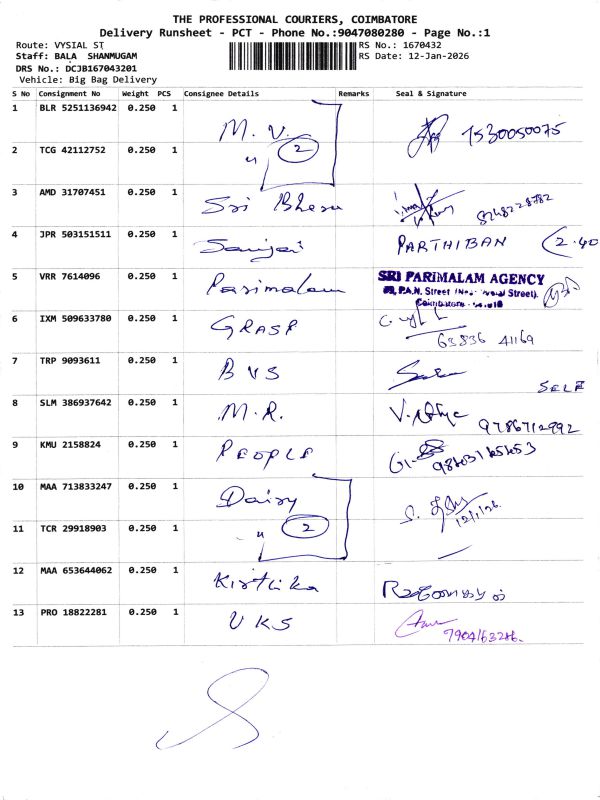 THE PROFESSIONAL COURIERS, COIMBATORE
Delivery Runsheet - PCT - Phone No.:9047080280 - Page No.:1
Route: VYSIAL ST
RS No.: 1670432
Staff: BALA SHANMUGAM
RS Date: 12-Jan-2026
DRS No.: DCJB167043201
Vehicle: Big Bag Delivery
S No Consignment No Weight PCS Consignee Details Remarks Seal & Signature
1 BLR 5251136942 0.250 1 M. V. 2 7530050075
2 TCG 42112752 0.250 1 "
3 AMD 31707451 0.250 1 Sri 8248228782
4 JPR 503151511 0.250 1 Sanjai PARTHIBAN 2.40
5 VRR 7614096 0.250 1 Parimalam SRI PARIMALAM AGENCY
P.A.N. Street
Coimbatore
6 IXM 509633780 0.250 1 GRASP 63836 41169
7 TRP 9093611 0.250 1 BVS SELF
8 SLM 386937642 0.250 1 M.R. 9786712992
9 KMU 2158824 0.250 1 PEOPLE
10 MAA 713833247 0.250 1 Dairy 12/1/26
11 TCR 29918903 0.250 1 " 2
12 MAA 653644062 0.250 1 Kirthika
13 PRO 18822281 0.250 1 VKS 7904163286.